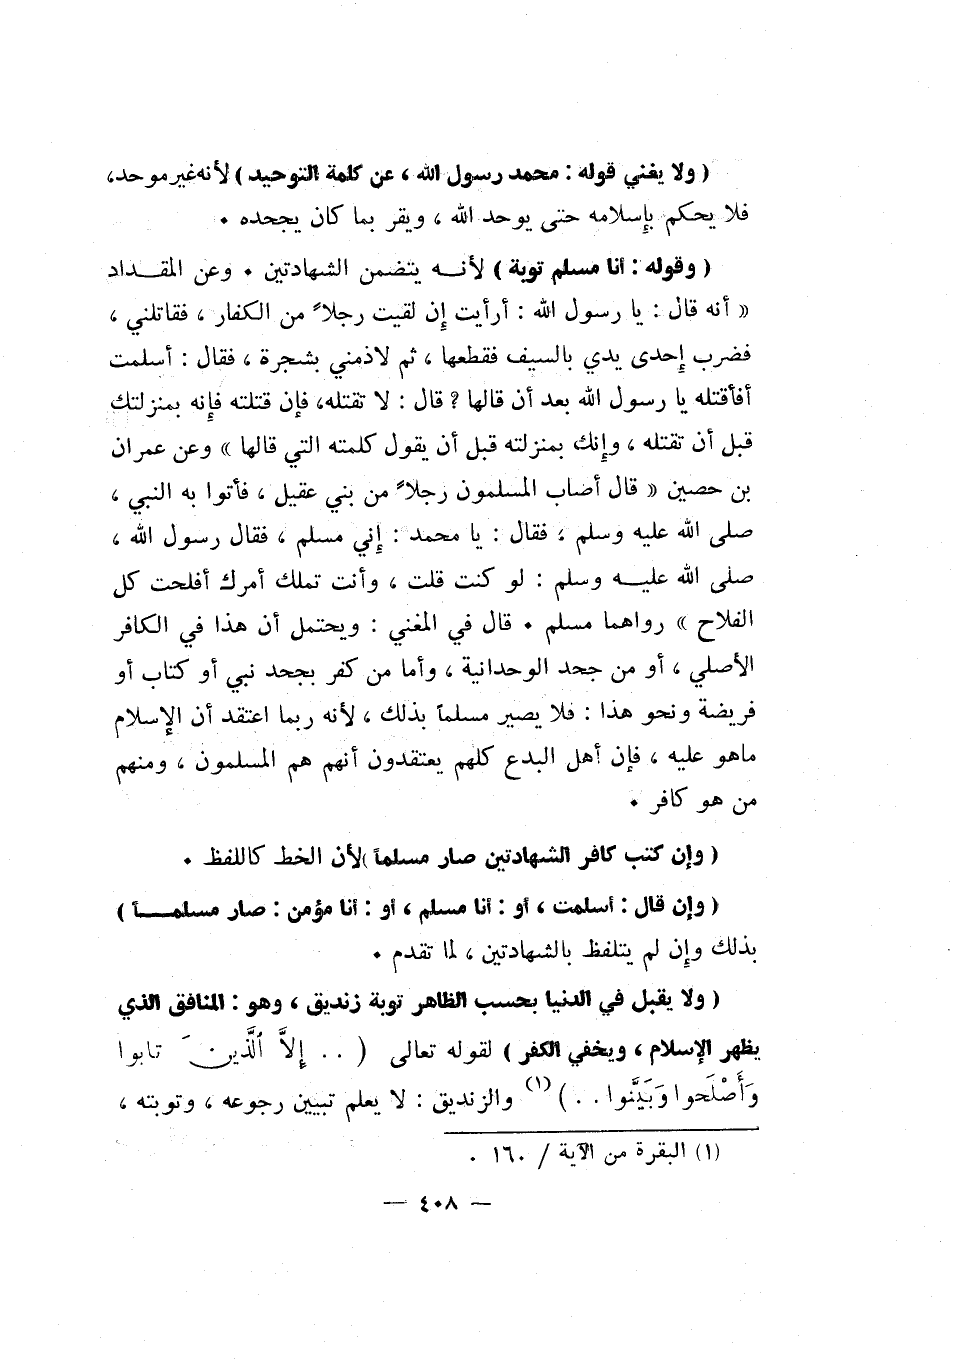 ( ولا يغني قوله : محمد رسول الله ، عن كلمة التوحيد ) لأنه غير موحد،
فلا يحكم بإسلامه حتى يوحد الله ، ويقر بما كان يجحده .
( وقوله : أنا مسلم توبة ) لأنه يتضمن الشهادتين . وعن المقداد
« أنه قال : يا رسول الله : أرأيت إن لقيت رجلاً من الكفار ، فقاتلني ،
فضرب إحدى يدي بالسيف فقطعها ، ثم لاذمني بشجرة ، فقال : أسلمت
أفأقتله يا رسول الله بعد أن قالها ؟ قال : لا تقتله، فإن قتلته فإنه بمنزلتك
قبل أن تقتله ، وإنك بمنزلته قبل أن يقول كلمته التي قالها » وعن عمران
بن حصين « قال أصاب المسلمون رجلاً من بني عقيل ، فأتوا به النبي ،
صلى الله عليه وسلم ، فقال : يا محمد : إني مسلم ، فقال رسول الله ،
صلى الله عليه وسلم : لو كنت قلت ، وأنت تملك أمرك أفلحت كل
الفلاح » رواهما مسلم . قال في المغني : ويحتمل أن هذا في الكافر
الأصلي ، أو من جحد الوحدانية ، وأما من كفر بجحد نبي أو كتاب أو
فريضة ونحو هذا : فلا يصير مسلماً بذلك ، لأنه ربما اعتقد أن الإسلام
ماهو عليه ، فإن أهل البدع كلهم يعتقدون أنهم هم المسلمون ، ومنهم
من هو كافر .
( وإن كتب كافر الشهادتين صار مسلماً ) لأن الخط كاللفظ .
( وإن قال : أسلمت ، أو : أنا مسلم ، أو : أنا مؤمن : صار مسلماً )
بذلك وإن لم يتلفظ بالشهادتين ، لما تقدم .
( ولا يقبل في الدنيا بحسب الظاهر توبة زنديق ، وهو : المنافق الذي
يظهر الإسلام ، ويخفي الكفر ) لقوله تعالى ( . . إِلاَّ الَّذِينَ تابوا
وَأَصْلَحوا وَبَيَّنوا . . ) (١) والزنديق : لا يعلم تبيين رجوعه ، وتوبته ،
(١) البقرة من الآية / ١٦٠ .
— ٤٠٨ —